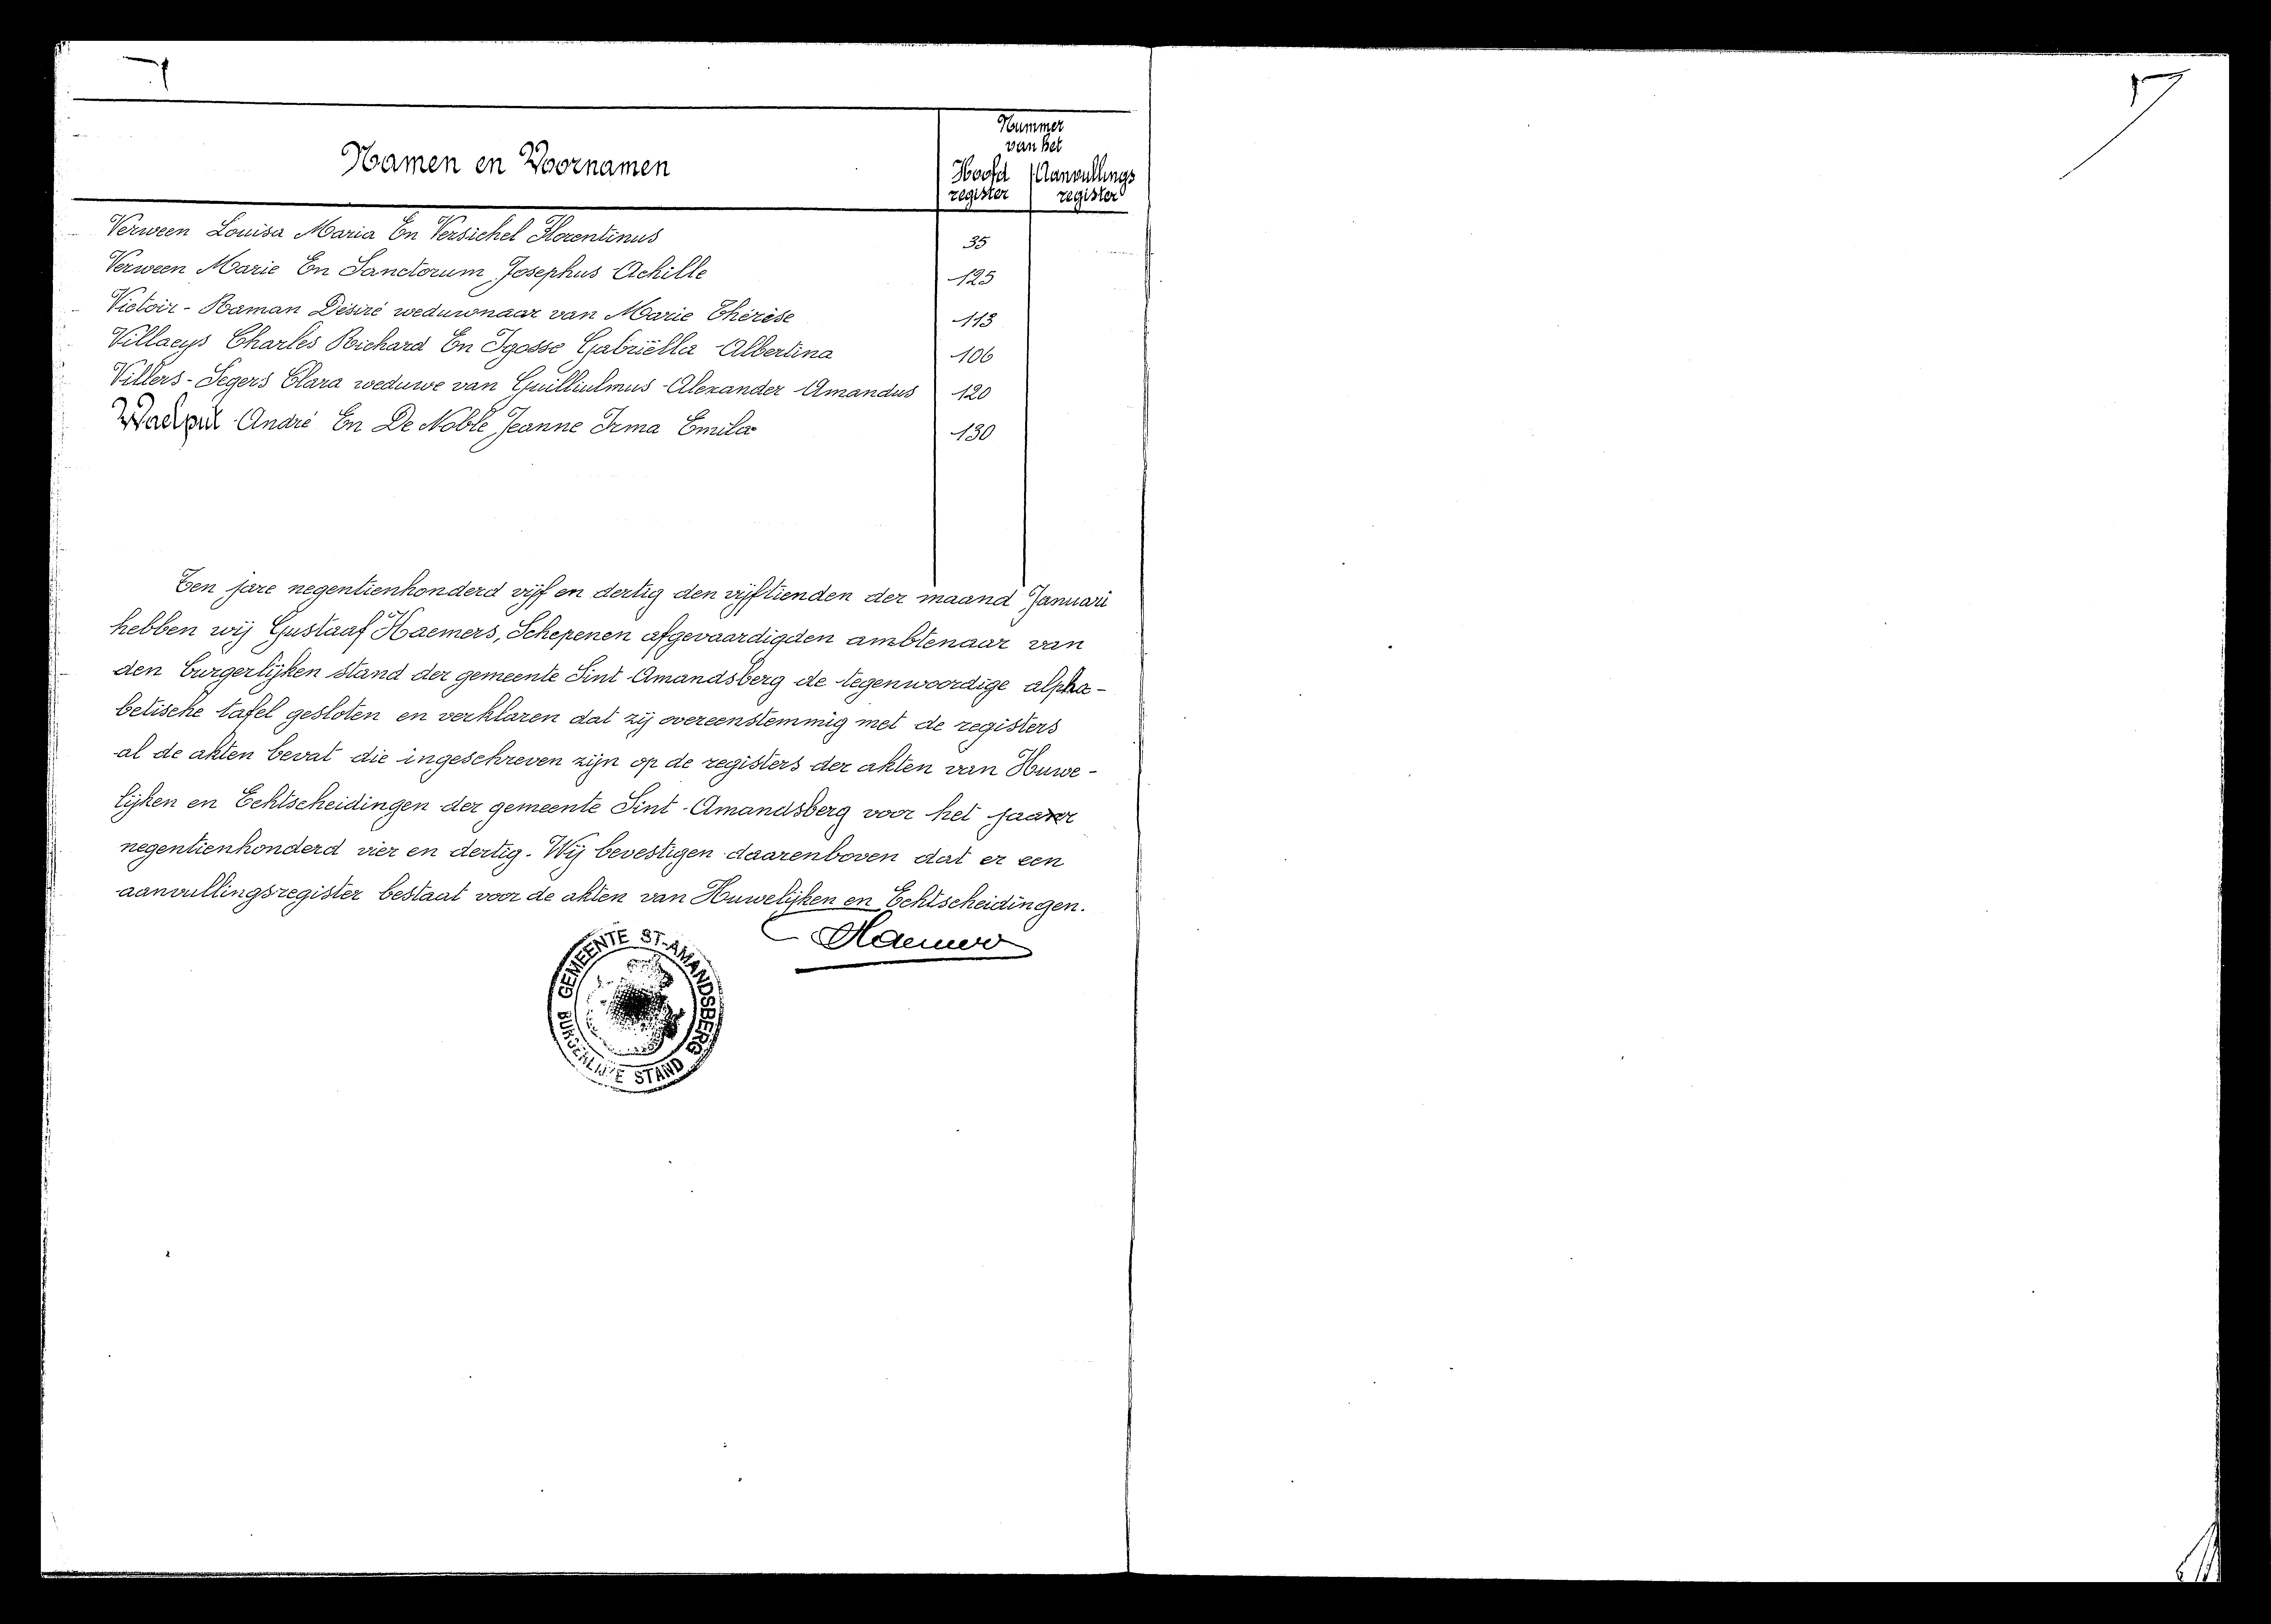 Nummer
van het
Namen en Voornamen
Hoofd register
Aanvullings register
Verween Louisa Maria En Versichel Florentinus 35
Verween Marie En Sanctorum Josephus Achille 125
Victoir - Raman Désiré weduwnaar van Marie Thérèse 113
Villaeys Charles Richard En Igosse Gabriëlla Albertina 106
Villers - Segers Clara weduwe van Guilliulmus Alexander Amandus 120
Waelput André En De Noble Jeanne Irma Emila 130
Ten jare negentienhonderd vijf en dertig den vijftienden der maand Januari
hebben wij Gustaaf Haemers, Schepenen afgevaardigden ambtenaar van
den burgerlijken stand der gemeente Sint Amandsberg de tegenwoordige alpha-
betische tafel gesloten en verklaren dat zij overeenstemmig met de registers
al de akten bevat die ingeschreven zijn op de registers der akten van Huwe-
lijken en Echtscheidingen der gemeente Sint-Amandsberg voor het jaar
negentienhonderd vier en dertig. Wij bevestigen daarenboven dat er een
aanvullingsregister bestaat voor de akten van Huwelijken en Echtscheidingen.
Haemers
GEMEENTE ST-AMANDSBERG
BURGERLIJKE STAND